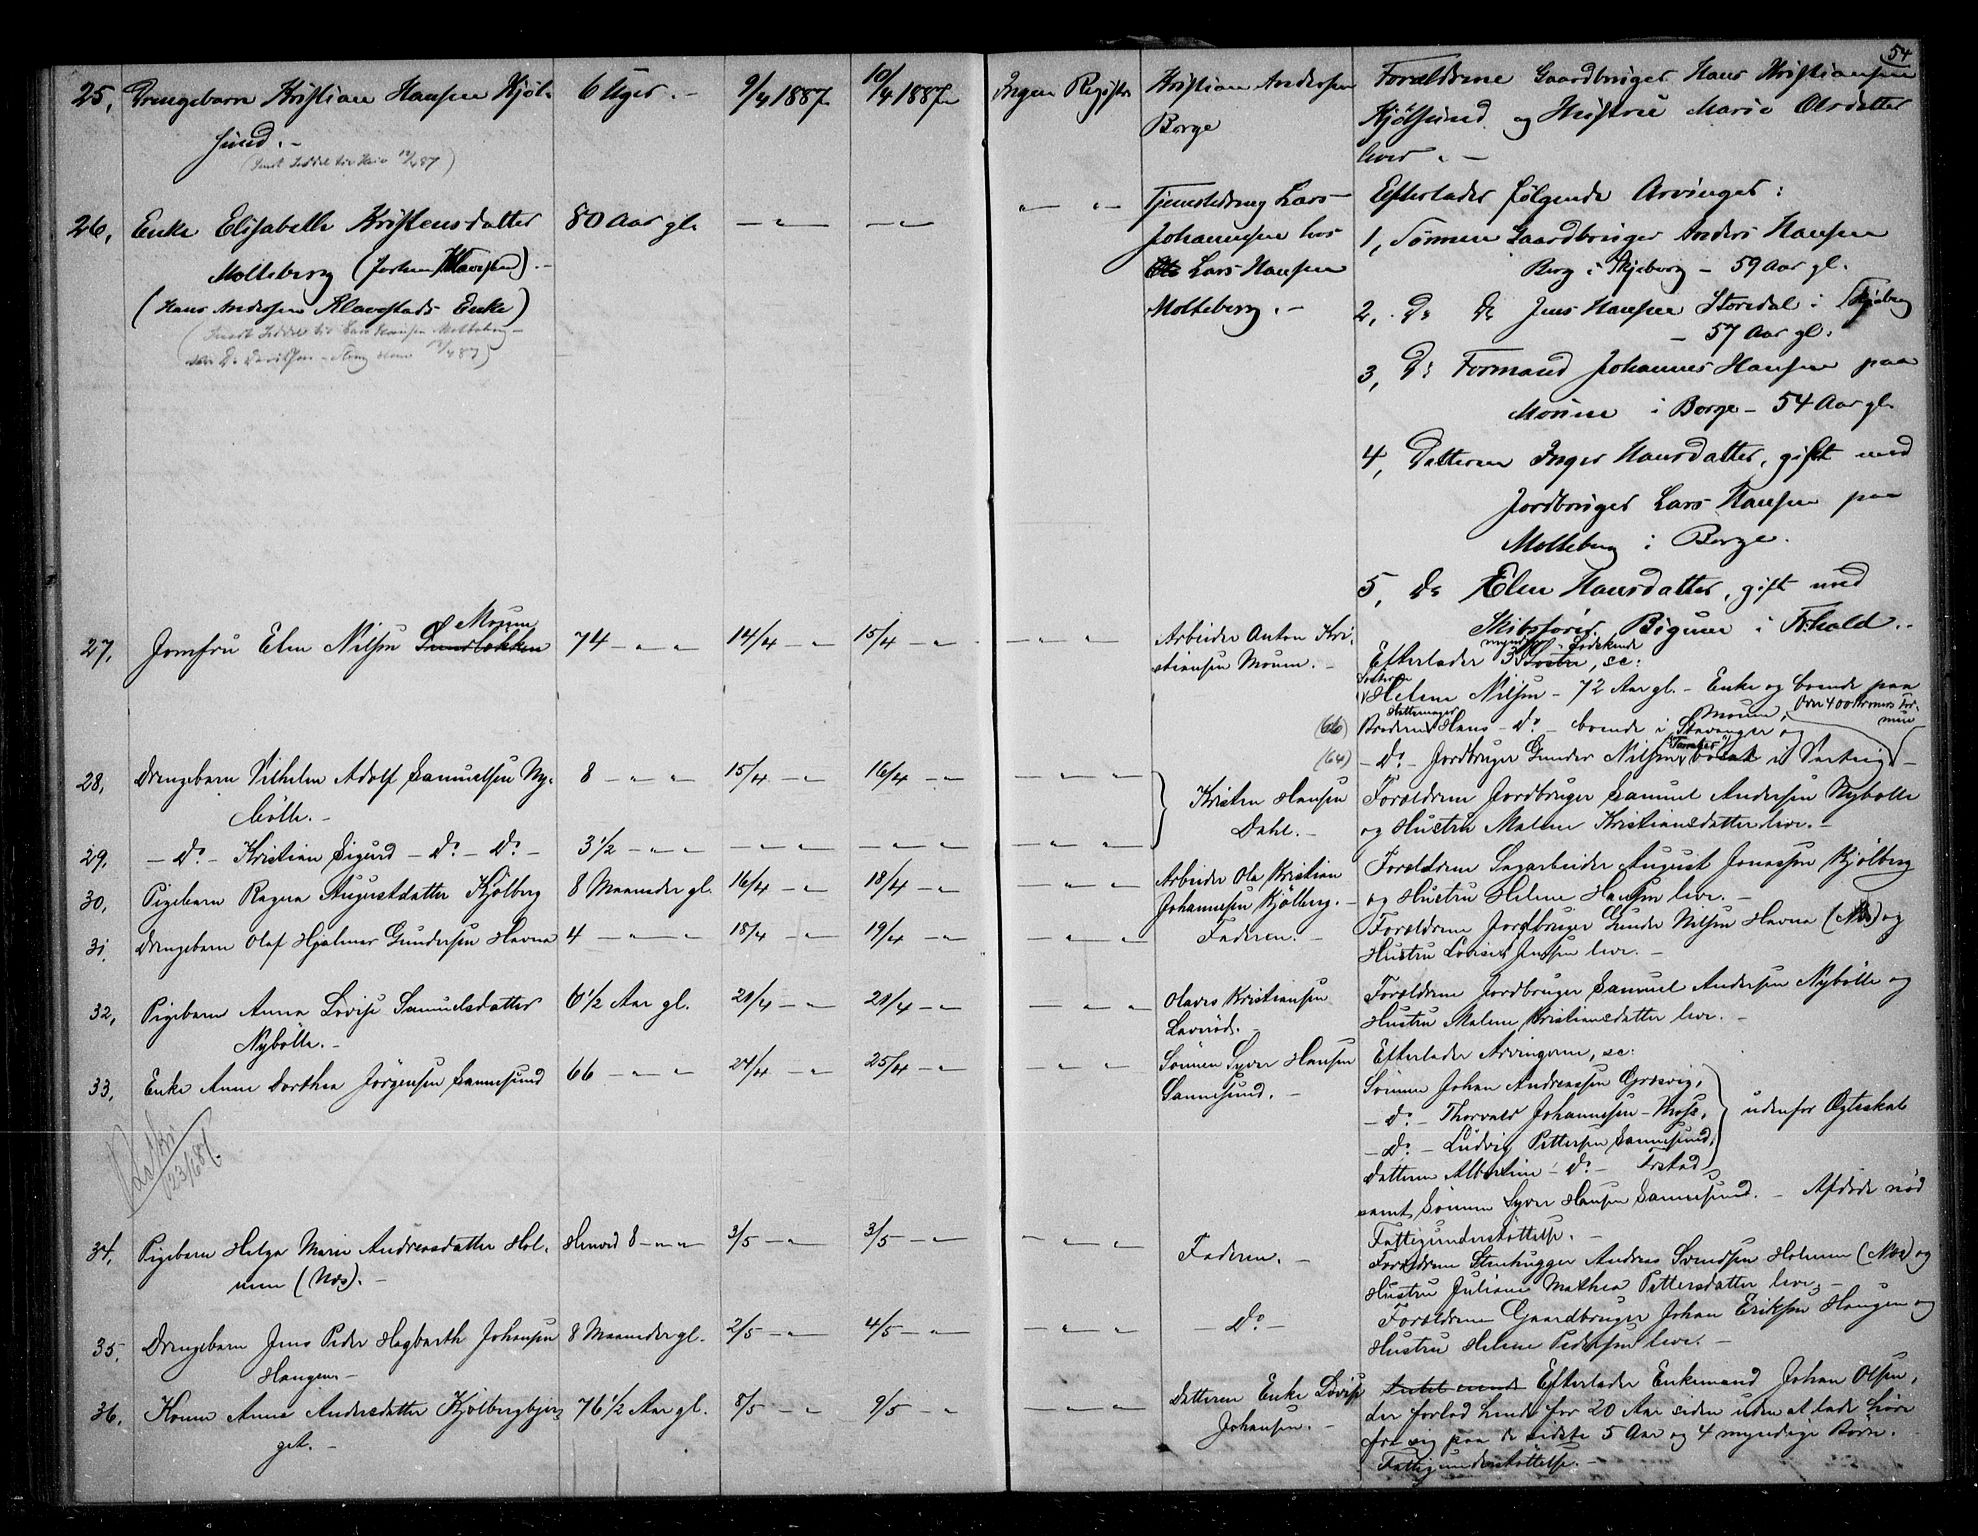 54
25, Drengebarn Kristian Hansen Kjöl- 6 Uger. - 9/4 1887 10/4 1887 Ingen Registr Kristian Andersen Forældrene Gaardbruger Hans Kristiansen
sund. - Borge Kjölsund og Hustru Marie Olsdatter
lever. -
26, Enke Elisabeth Kristensdatter 80 Aar gl. - " - - " - " - " - Tjenestedreng Lars Efterlader følgende Arvinger:
Molteberg Johannesen hos 1, Sønnen Gaardbruger Anders Hansen
(Hans Andersen Klavestads Enke) Lars Hansen Berg i Skjeberg - 59 Aar gl.
Molteberg. - 2, Do Do Jens Hansen Storedal i Skjeberg
- 57 Aar gl.
3, Do Formand Johannes Hansen paa
Moum i Borge - 54 Aar gl.
4, Datteren Inger Hansdatter, gift med
Jordbruger Lars Hansen paa
Molteberg i Borge.
5, Do Elen Hansdatter, gift med
Skibsfører Bigum i Fr.hald. -
27, Jomfru Elen Nilsen Moum 74 - " - " 14/4 - " 15/4 - " - " - " Arbeider Anton Kri- Efterlader 3 myndige Sødskende, sc:
stiansen Moum. - Søsteren Helene Nilsen - 72 Aar gl. - Enke og boende paa
Moum,
(66) Broderen Hattemager Hans - Do - boende i Stavanger og
(64) - Do - Jordbruger Gunder Nilsen i Varteig -
28, Drengebarn Vilhelm Adolf Samuelsen Ny- 8 - " - " 15/4 - " 16/4 - " - " - " Kristen Hansen Forældrene Jordbruger Samuel Andersen Nybølle
bölle. - Dahl. - og Hustru Malene Kristiansdatter leve. -
29, - Do - Kristian Sigurd - Do - Do - 3 1/2 - " - " - " - " - " - " - " - "
30, Pigebarn Ragna Augustdatter Kjölberg 8 Maaneder gl. 16/4 - " 18/4 - " - " - " Arbeider Ole Kristian Forældrene Sagarbeider August Jonassen Kjölberg
Johannesen Kjölberg. - og Hustru Helene Hansen leve. -
31, Drengebarn Olaf Hjalmar Gundersen Havna 4 - " - " 18/4 - " 19/4 - " - " - " Faderen. - Forældrene Jordbruger Gunder Nilsen Havna (Næs) og
Hustru Lovise Jensen leve. -
32, Pigebarn Anna Lovise Samuelsdatter 6 1/2 Aar gl. 20/4 - " 20/4 - " - " - " Olaves Kristiansen Forældrene Jordbruger Samuel Andersen Nybølle og
Nybölle. - Hustru Malene Kristiansdatter leve. -
33, Enke Anne Dorthea Jörgensen Sannesund 66 - " - " 24/4 - " 25/4 - " - " - " Sönnen Syver Hansen Efterlader Arvingerne, sc:
Sannesund. - Sönnen Johan Andreassen Gresvig,
- Do - Thorvald Johannesen - Moss, udenfor Ægteskab
- Do - Ludvig Pettersen Sannesund,
Datteren Albertine - Do - Fr.stad
samt Sönnen Syver Hansen Sannesund. - Afdøde nød
Fattigunderstøttelse. -
34, Pigebarn Helga Marie Andreasdatter Hol- Henved 8 - " - " 3/5 - " 3/5 - " - " - " Faderen. - Forældrene Stenhugger Andreas Svendsen Holmen (Næs) og
men (Næs). - Hustru Juliane Mathea Pettersdatter leve. -
35, Drengebarn Jens Peder Hagbarth Johansen 8 Maaneder gl. 2/5 - " 4/5 - " - " - " - Do - Forældrene Gaardbruger Johan Eriksen Haugen og
Haugen - Hustru Helene Pedersen leve. -
36, Kone Anne Andersdatter Kjölbergbjer- 76 1/2 Aar gl. 8/5 - " 9/5 - " - " - " Datteren Enke Lovise Efterlader Enkemand Johan Olsen,
get. - Johansen. - der forlod hende for 20 Aar siden uden at lade høre
fra sig paa de sidste 5 Aar og 4 myndige Børn.
Fattigunderstøttelse. -